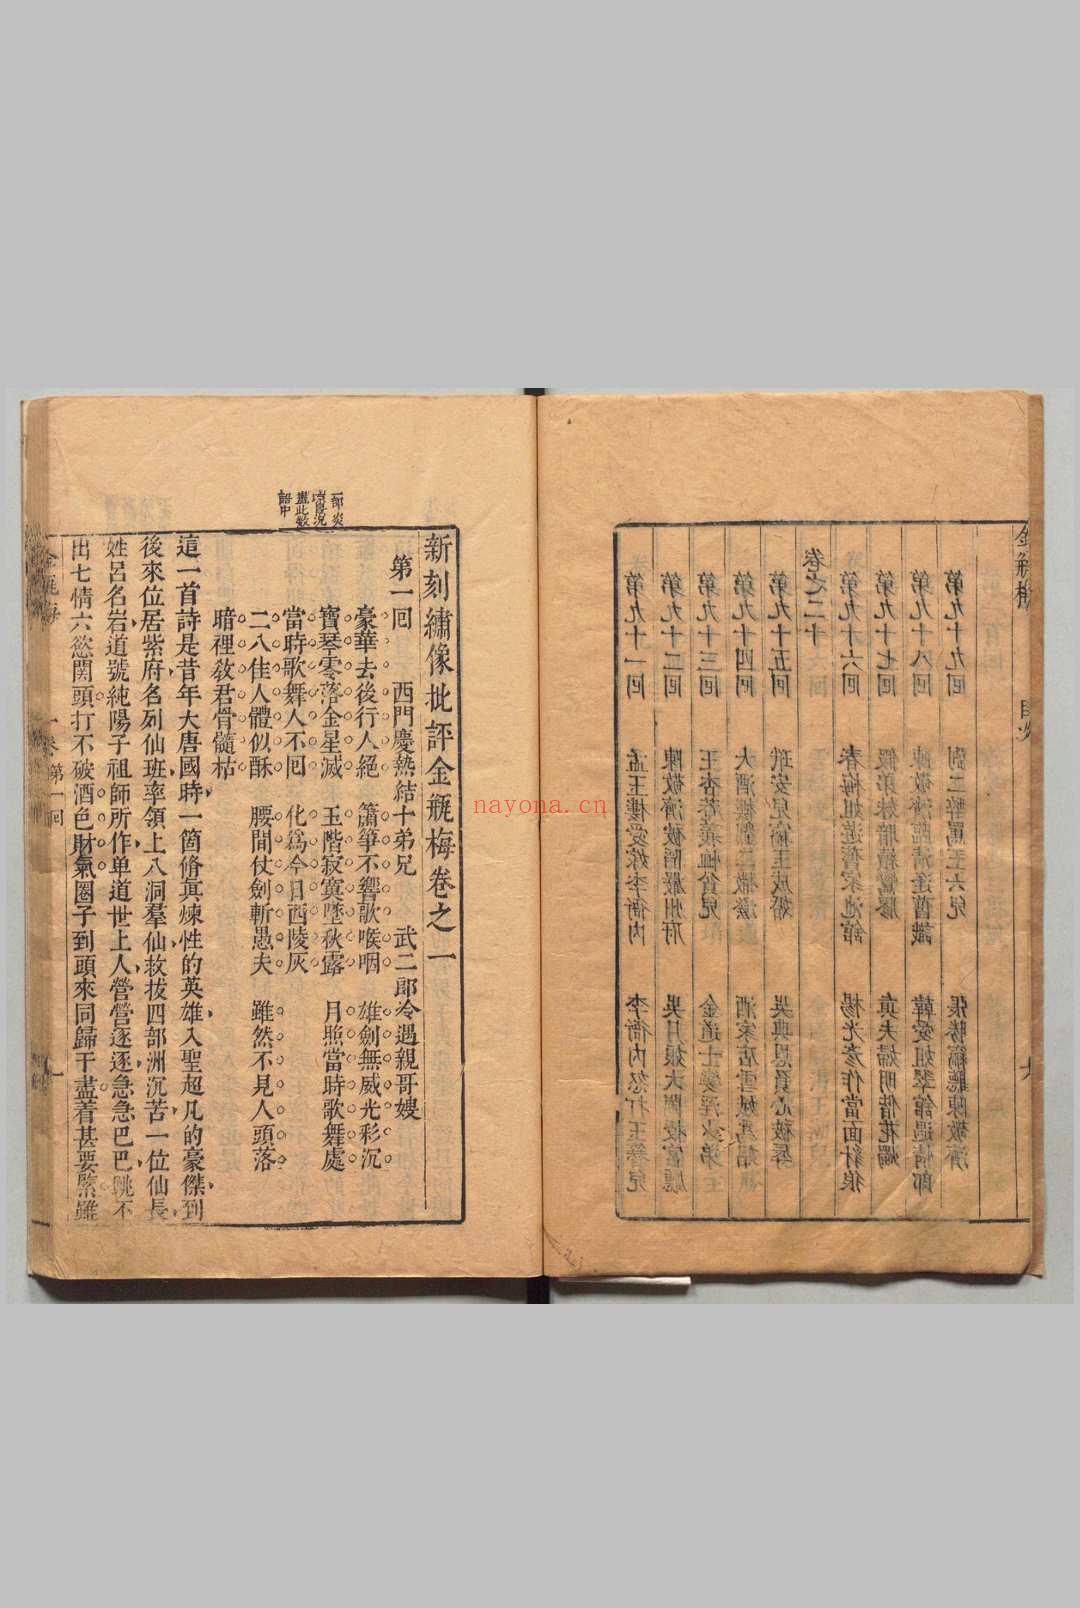 第九十一回 孟玉樓愛嫁李衙內 李衙內怒打玉簪兒
第九十二回 陳敬濟被陷嚴州府 吳月娘大鬧授官廳
第九十三回 王杏菴義恤貧兒 金道士孌淫少弟
第九十四回 大酒樓劉二撒潑 酒家店雪娥為娼
第九十五回 玳安兒竊玉成婚 吳典恩負心被辱
卷之二十
第九十六回 春梅姐遊舊家池館 楊光彥作當面豺狼
第九十七回 假弟妹暗續鸞膠 真夫婦明偕花燭
第九十八回 陳敬濟臨清逢舊識 韓愛姐翠館遇情郎
第九十九回 劉二醉罵王六兒 張勝竊聽陳敬濟
金瓶梅 目次
一部炎
涼景況
盡此數
語中
新刻繡像批評金瓶梅卷之一
第一回 西門慶熱結十弟兄 武二郎冷遇親哥嫂
豪華去後行人絕 簫箏不響歌喉咽 雄劍無威光彩沉
寶琴零落金星滅 玉階寂寞墜秋露 月照當時歌舞處
當時歌舞人不囘 化爲今日西陵灰
二八佳人體似酥 腰間仗劍斬愚夫 雖然不見人頭落
暗裡敎君骨髓枯
這一首詩是昔年大唐國時一箇脩眞煉性的英雄入聖超凡的豪傑到
後來位居紫府名列仙班率領上八洞羣仙救拔四部洲沉苦一位仙長
姓呂名岩道號純陽子祖師所作单道世上人營營逐逐急急巴巴跳不
出七情六慾関頭打不破酒色財氣圈子到頭來同歸于盡着甚要緊雖
金瓶梅 卷一 第一回 一
nayona.cn